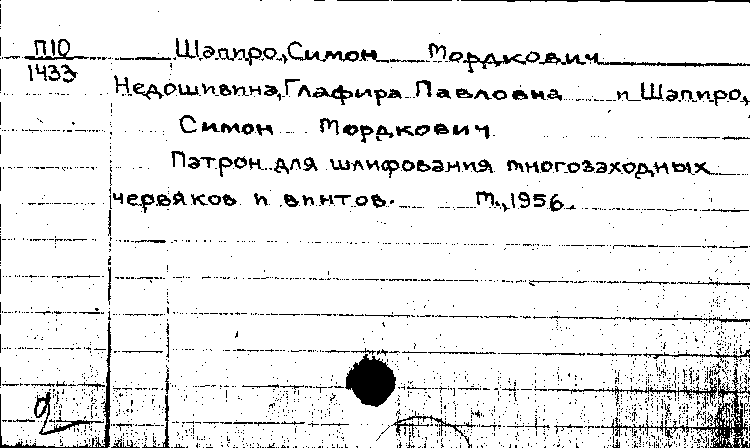 П10
1433
Шапиро, Симон Мордкович
Недошивина, Глафира Павловна и Шапиро,
Симон Мордкович
Патрон для шлифования многозаходных
червяков и винтов. М., 1956.
2